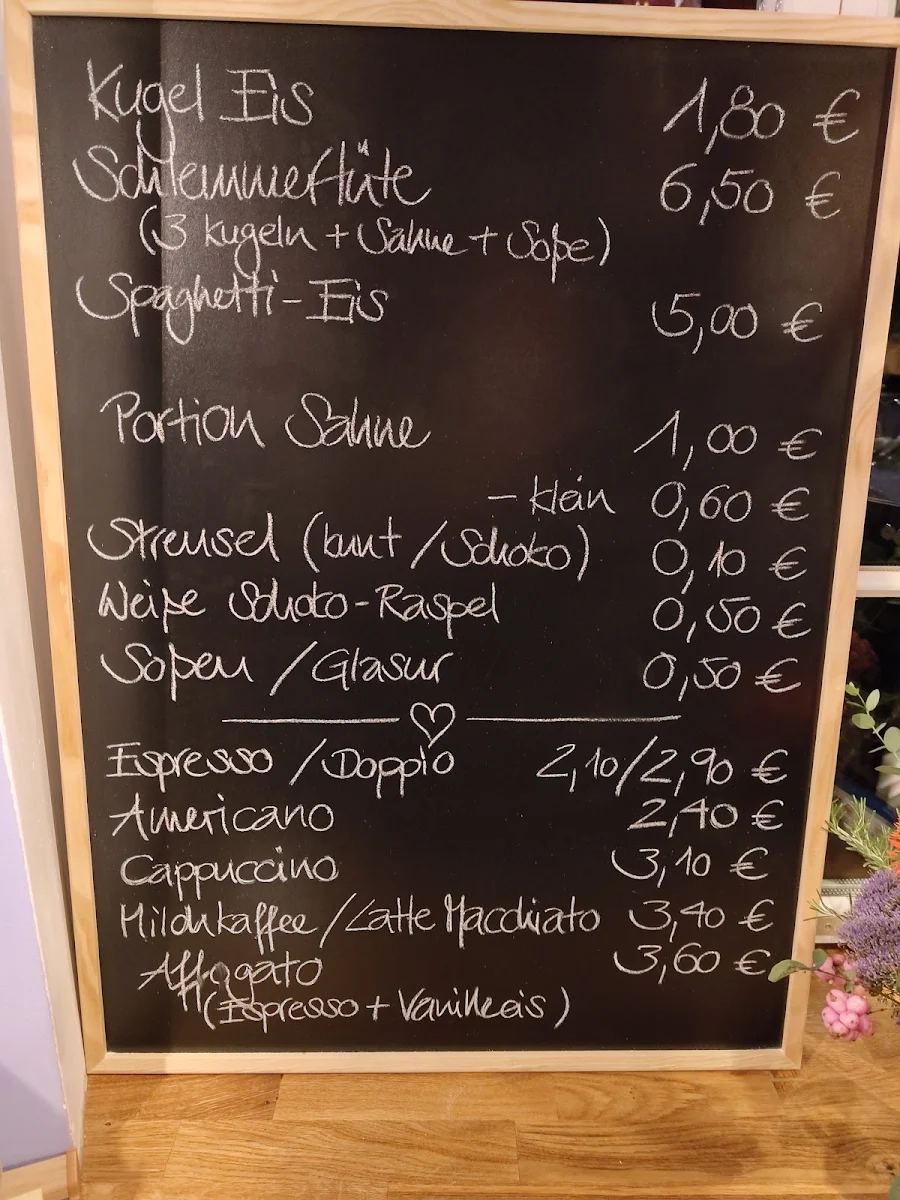 Kugel Eis 1,80 €
Schlemmertüte 6,50 €
(3 Kugeln + Sahne + Soße)
Spaghetti-Eis 5,00 €
Portion Sahne 1,00 €
- klein 0,60 €
Streusel (bunt / Schoko) 0,10 €
Weiße Schoko-Raspel 0,50 €
Soßen / Glasur 0,50 €
Espresso / Doppio 2,10/2,90 €
Americano 2,40 €
Cappuccino 3,10 €
Milchkaffee / Latte Macchiato 3,40 €
Affogato 3,60 €
(Espresso + Vanilleeis)